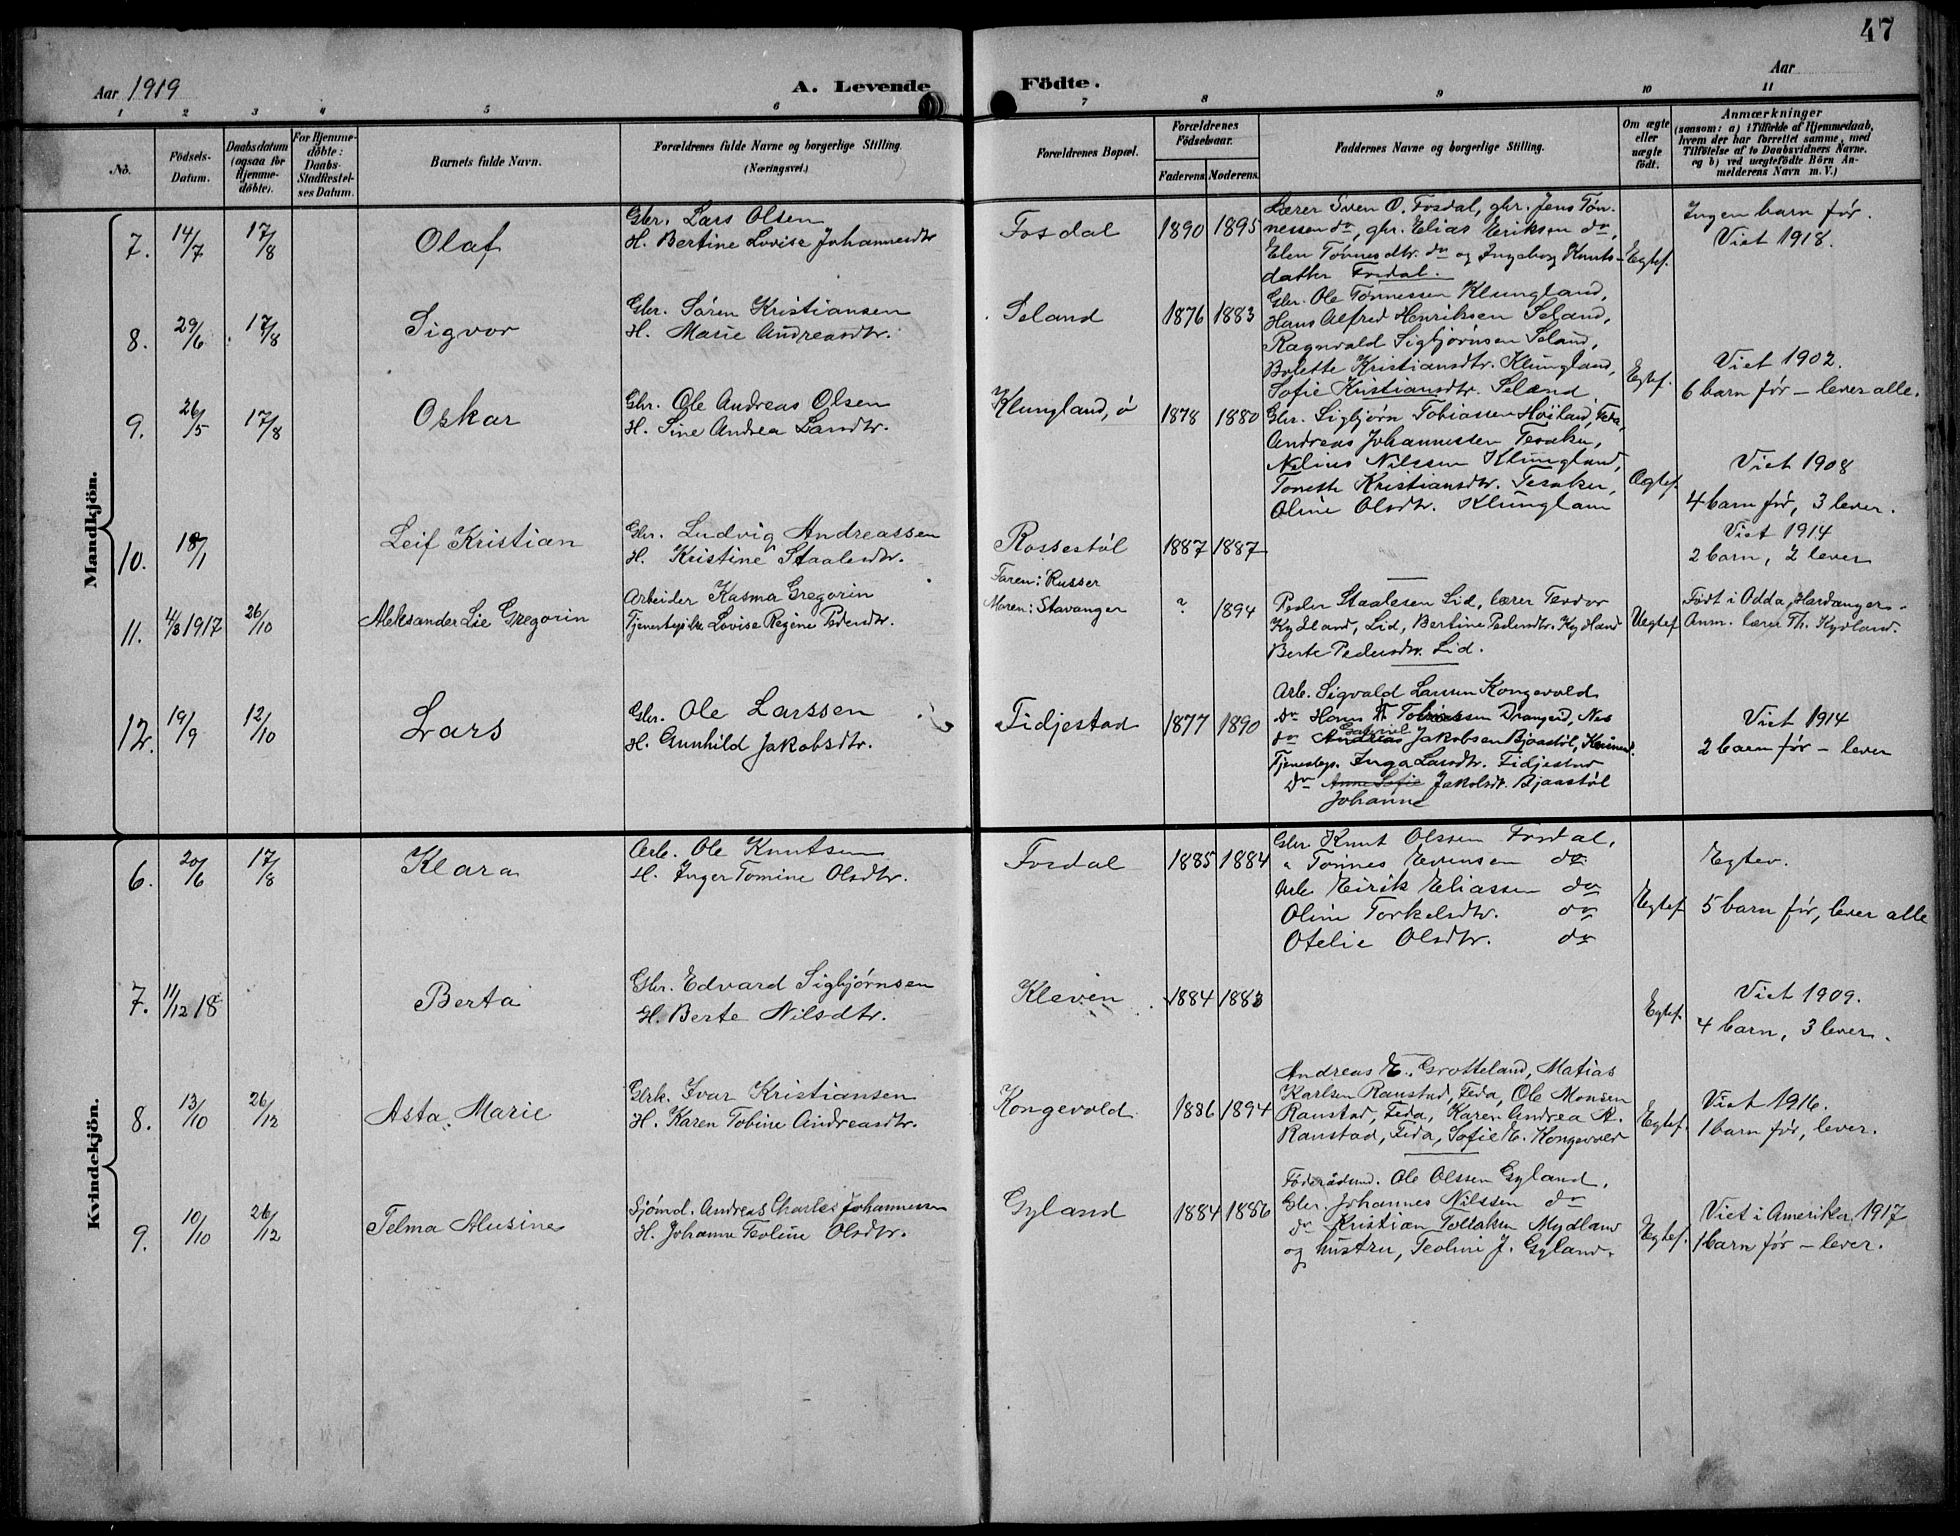 47
Aar 1919
A. Levende Födte.
Aar
1 2 3 4 5 6 7 8 9 10 11
No.
Födsels-
Datum.
Daabsdatum
(ogsaa for
Hjemme-
döbte).
For Hjemme-
döbte:
Daabs-
Stadfæstel-
ses Datum.
Barnets fulde Navn.
Forældrenes fulde Navne og borgerlige Stilling.
(Næringsvei.)
Forældrenes Bopæl.
Forældrenes
Födselsaar.
Faderens. Moderens.
Faddernes Navne og borgerlige Stilling.
Om ægte
eller
uægte
födt.
Anmærkninger
(saasom: a) i Tilfælde af Hjemmedaab,
hvem der har forrettet samme, med
Tilföielse af to Daabsvidners Navne.
og b) ved uægtefödte Börn An-
melderens Navn m. V.)
Mandkjön.
7. 14/7 17/8 Olaf
Gbr. Lars Olsen
H. Bertine Lovise Johannesdtr
Fosdal 1890 1895
Lærer Sven O. Fosdal, gbr. Jens Tön-
nessen do, gbr. Elias Eriksen do,
Elen Tönnesdtr. do og Ingeborg Knuts-
datter Fosdal.
Egtef.
Ingen barn før.
Viet 1918.
8. 29/6 17/8 Sigvor
Gbr. Søren Kristiansen
H. Marie Andreasdtr.
Seland 1876 1883
Gbr. Ole Tønnessen Klungland,
Hans Alfred Henriksen Seland,
Ragnvald Sigbjørnsen Seland,
Bolette Kristiansdtr. Klungland,
Sofie Kristiansdtr. Seland
Egtef.
Viet 1902.
6 barn før – lever alle.
9. 26/5 17/8 Oskar
Gbr. Ole Andreas Olsen
H. Sine Andrea Larsdtr.
Klungland, ø 1878 1880
Gbr. Sigbjørn Tobiassen Høiland, Feda,
Andreas Johannessen Tesaker,
Nilius Nilssen Klungland,
Tonette Kristiansdtr. Tesaker,
Oline Olsdtr. Klungland
Ægtef.
Viet 1908
4 barn før, 3 lever.
10. 18/1 Leif Kristian
Gbr. Ludvig Andreassen
H. Kristine Staalesdtr.
Rossestøl 1887 1887
Viet 1914
2 barn, 2 lever
11. 4/3 1917 26/10 Aleksander Lie Gregorin
Arbeider Kasma Gregorin
Tjenestepike Lovise Regine Pedersdtr.
Faren: Russer
Moren: Stavanger
? 1894
Peder Staalesen Lid, lærer Teodor
Kydland, Lid, Bertine Pedersdtr. Kydland
Berte Pedersdtr. Lid.
Uegtef
Født i Odda, Hardanger.
Anm. lærer Th. Kydland.
12. 19/9 12/10 Lars
Gbr. Ole Larssen
H. Gunhild Jakobsdtr.
Fidjestad 1877 1890
Arb. Sigvald Larsen Kongevold
do Hans T. Tobiassen Drangeid, Nes
Gabriel
do Andreas Jakobsen Bjaastøl,
Tjenestep. Inga Larsdtr. Fidjestad
do Anne Sofie Jakobsdtr. Bjaastøl
Johanne
Viet 1914
2 barn før – lever
Kvindekjön.
6. 20/6 17/8 Klara
Arb. Ole Knutsen
H. Inger Tomine Olsdtr.
Fosdal 1885 1884
Gbr. Knut Olssen Fosdal,
" Tønnes Evensen do
Arb. Eirik Eliassen do
Oline Torkelsdtr. do
Otelie Olsdtr. do
Egtef
Egtev.
5 barn før, lever alle
7. 11/12 18 Berta
Gbr. Edvard Sigbjørnsen
H. Berte Nilsdtr.
Kleven 1884 1883
Egtef.
Viet 1909.
4 barn, 3 lever.
8. 13/10 26/12 Asta Marie
Gbrk. Ivar Kristiansen
H. Karen Tobine Andreasdtr.
Kongevold 1886 1894
Andreas E. Grøtteland, Matias
Karlsen Ranstad, Feda, Ole Monsen
Ranstad, Feda, Karen Andrea A.
Ranstad, Feda, Sofie E. Kongevold
Egtef.
Viet 1916.
1 barn før, lever.
9. 10/10 26/12 Telma Alusine
Sjømd. Andreas Charles Johannessen
H. Johanne Teoline Olsdtr.
Gyland 1884 1886
Føderådmd. Ole Olssen Gyland,
Gbr. Johannes Nilssen do
do Kristian Tollaksen Mydland
og hustru, Teoline J. Gyland.
Egtef.
Viet i Amerika 1917
1 barn før – lever.